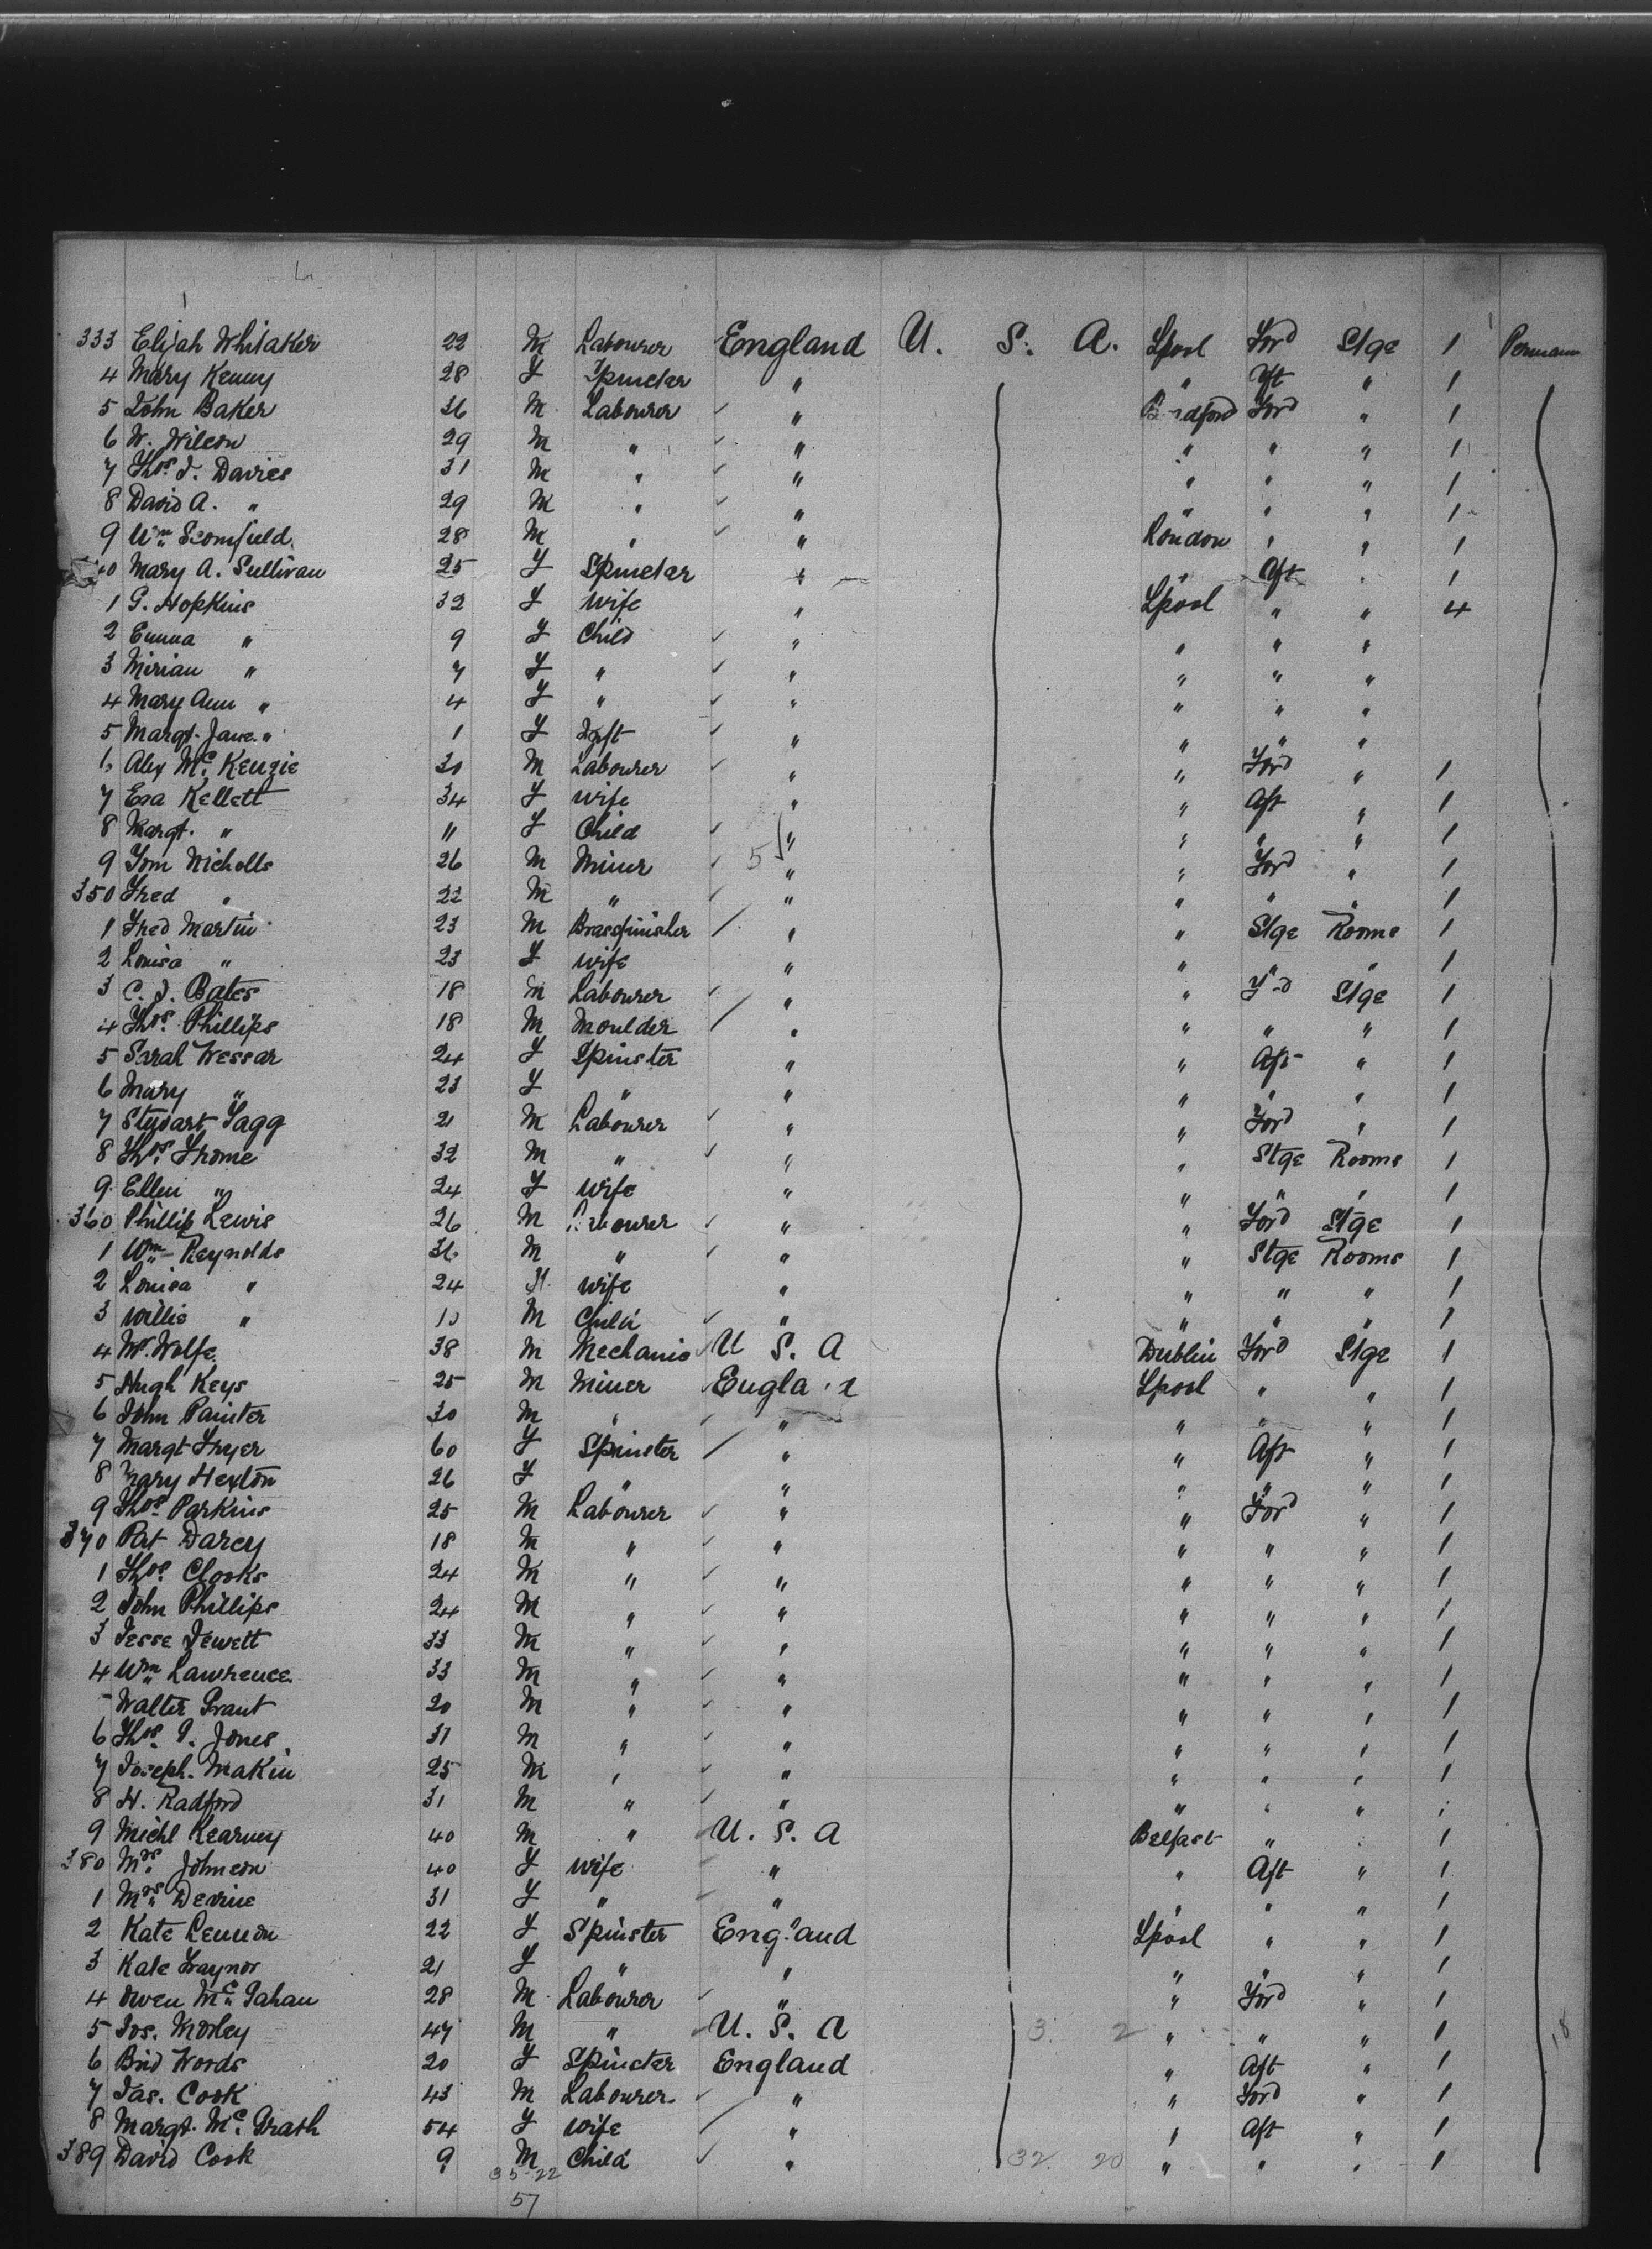 333 Elijah Whitaker 22 M Labourer England U. S. A. Lpool Ford Stge 1
4 Mary Kenny 28 F Spinster " " Aft " 1
5 John Baker 36 M Labourer " Bradford Ford " 1
6 W. Wilson 29 M " " " " " 1
7 Thos. J. Davies 31 M " " " " " 1
8 David A. " 29 M " " " " " 1
9 Wm. 28 M " " London " " 1
40 Mary A. Sullivan 25 F Spinster " " Aft " 1
1 G. Hopkins 32 F Wife " Lpool " " 4
2 Emma " 9 F Child " " " "
3 Miriam " 7 F " " " " "
4 Mary Ann " 4 F " " " " "
5 Margt. Jane " 1 F Inft " " " "
6 Alex Mc. Kenzie 30 M Labourer " " Ford " 1
7 Eva Kellett 34 F Wife " " Aft " 1
8 Margt. " 11 F Child " " " " 1
9 Tom Nicholls 26 M Miner 5 " " Ford " 1
350 Fred " 22 M " " " " " 1
1 Fred Martin 23 M Brassfinisher " " Stge Rooms 1
2 Louisa " 23 F Wife " " " " 1
3 C. J. Bates 18 M Labourer " " Frd Stge 1
4 Thos. Phillips 18 M Moulder " " " " 1
5 Sarah Wessar 24 F Spinster " " Aft " 1
6 Mary " 23 F " " " " " 1
7 Stewart Fagg 21 M Labourer " " Ford " 1
8 Thos. Frome 32 M " " " Stge Rooms 1
9 Ellen " 24 F Wife " " " " 1
360 Phillip Lewis 26 M Labourer " " Ford Stge 1
1 Wm. Reynolds 36 M " " " Stge Rooms 1
2 Louisa " 24 Wife " " " " 1
3 Willis " 10 M Child " " " " 1
4 W. Wolfe 38 M Mechanic U S. A Dublin Ford Stge 1
5 Hugh Keys 25 M Miner England Lpool " " 1
6 John Painter 30 M " " " " " 1
7 Margt Fryer 60 F Spinster " " Aft " 1
8 Mary Hexton 26 F " " " " " 1
9 Thos. Parkins 25 M Labourer " " Ford " 1
370 Pat Darcy 18 M " " " " " 1
1 Thos. Clooks 24 M " " " " " 1
2 John Phillips 24 M " " " " " 1
3 Jesse Jewett 33 M " " " " " 1
4 Wm. Lawrence 33 M " " " " " 1
Walter Grant 20 M " " " " " 1
6 Thos. G. Jones 31 M " " " " " 1
7 Joseph Makin 25 M " " " " " 1
8 H. Radford 31 M " " " " " 1
9 Michl Kearney 40 M " U. S. A Belfast " " 1
380 Mrs. Johnson 40 F Wife " " Aft " 1
1 Mrs. Devine 31 F " " " " " 1
2 Kate Lennon 22 F Spinster England Lpool " " 1
3 Kate Traynor 21 F " " " " " 1
4 Owen Mc. Gahan 28 M Labourer " " Ford " 1
5 Jos. Morley 47 M " U. S. A 3. 2 " " " 1 18
6 Brid Woods 20 F Spinster England " Aft " 1
7 Jas. Cook 43 M Labourer " " Ford " 1
8 Margt. Mc. Grath 54 F Wife " " Aft " 1
389 David Cook 9 M Child " 32. 20 " " " 1
35-22
57